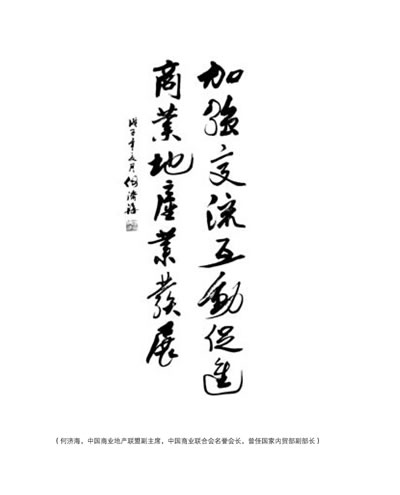 加強交流互動促進
商業地產業發展
戊子年文月何濟海
（何济海，中国商业地产联盟副主席，中国商业联合会名誉会长，曾任国家内贸部副部长）